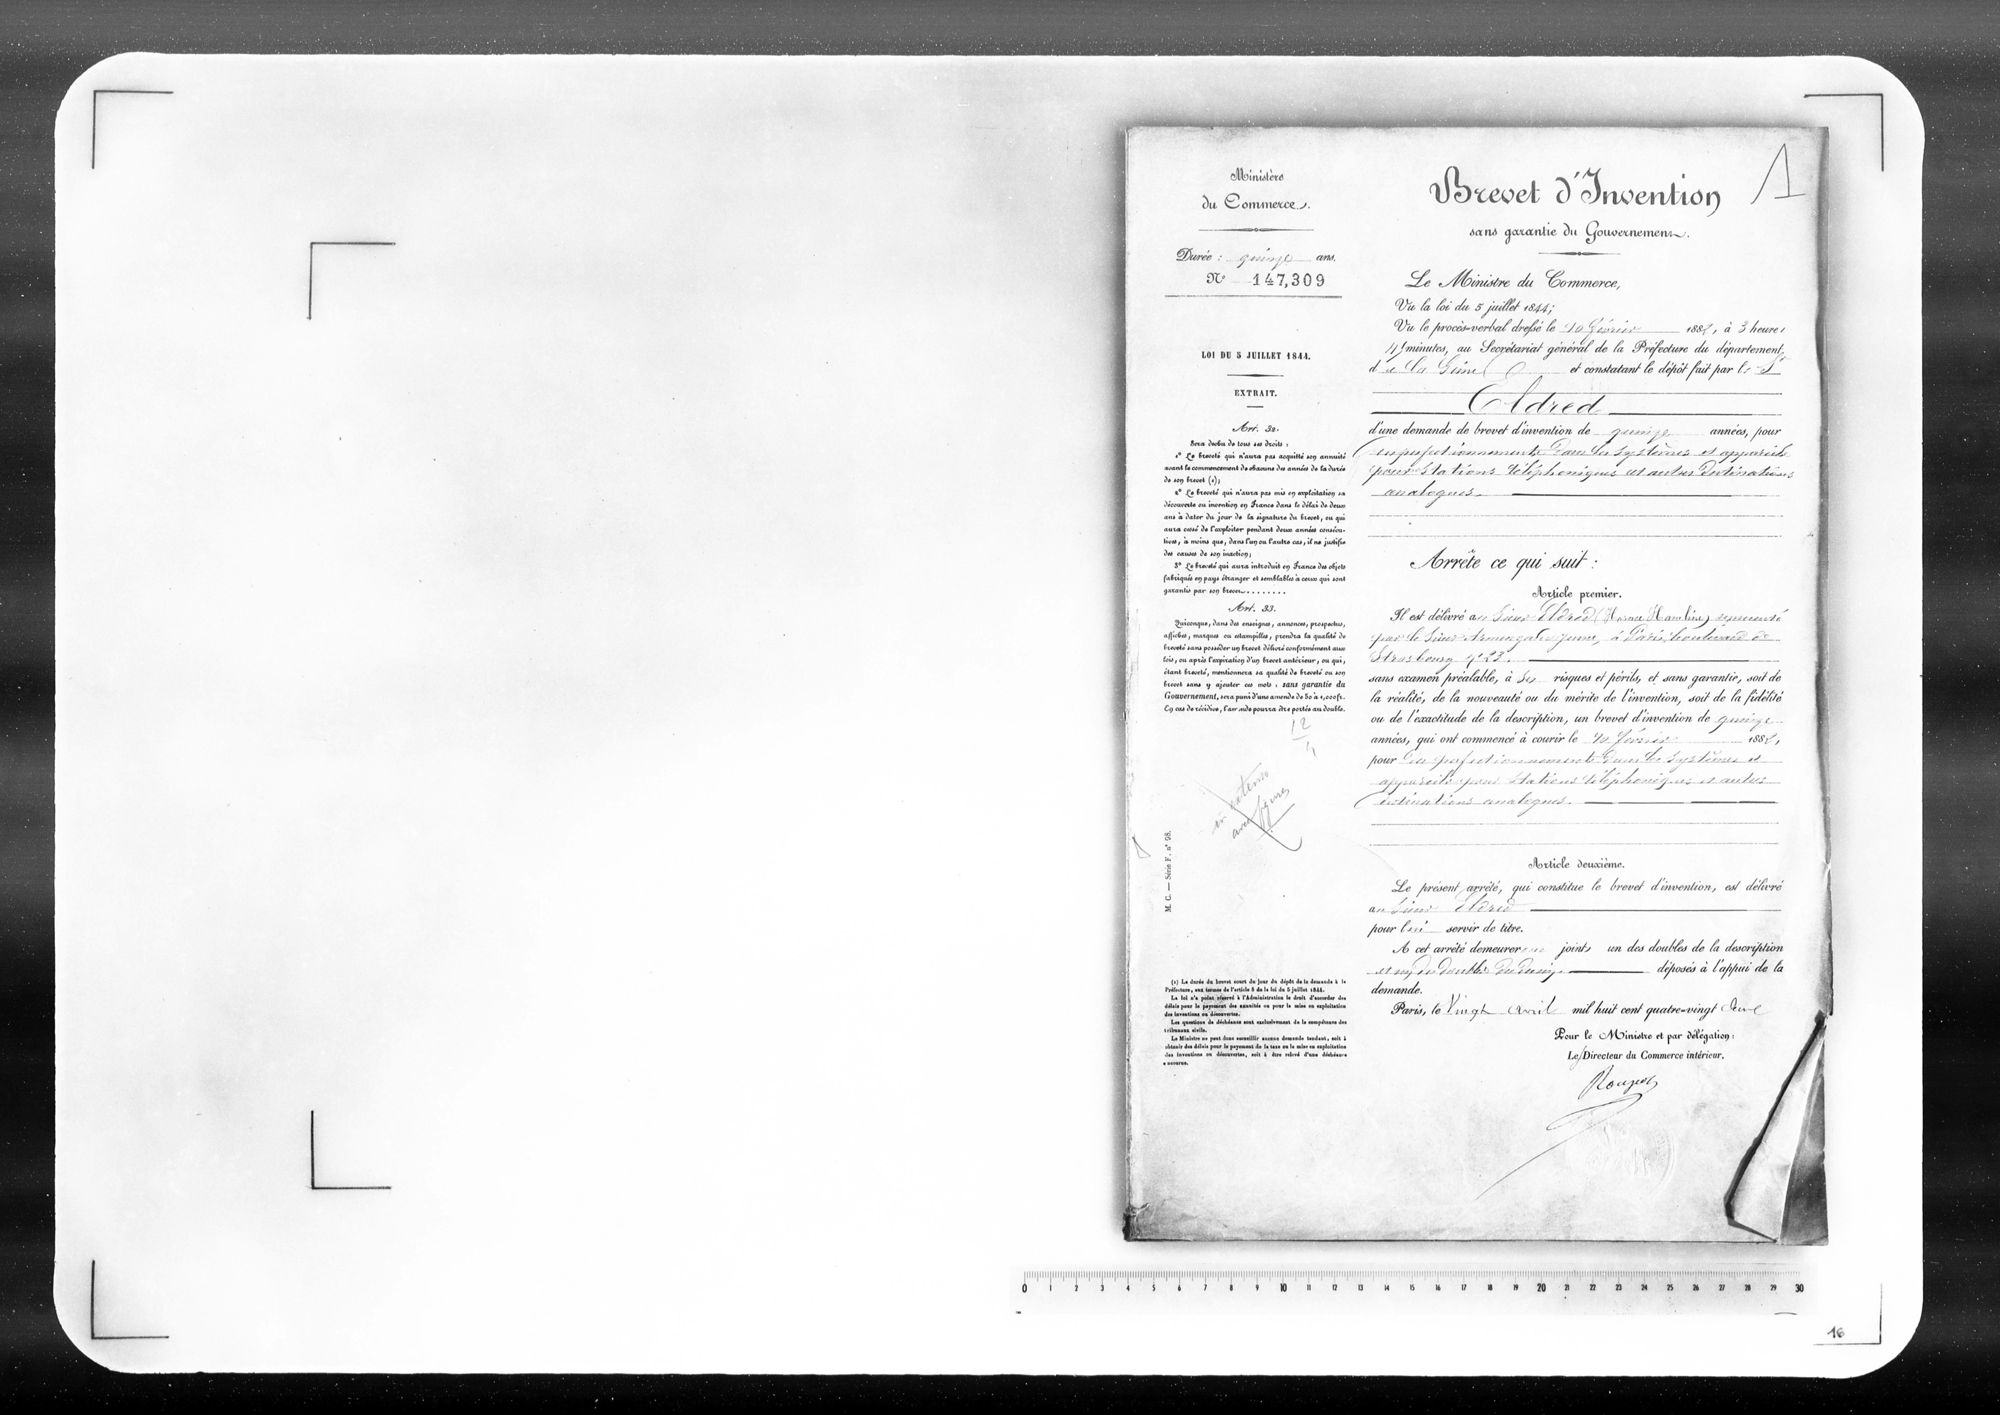 Ministère
du Commerce.
Durée : quinze ans.
N° 147,309
LOI DU 5 JUILLET 1844.
EXTRAIT.
Art. 32.
Sera déchu de tous ses droits :
1° Le breveté qui n'aura pas acquitté son annuité
avant le commencement de chacune des années de la durée
de son brevet (1);
2° Le breveté qui n'aura pas mis en exploitation sa
découverte ou invention en France dans le délai de deux
ans à dater du jour de la signature du brevet, ou qui
aura cessé de l'exploiter pendant deux années consécu-
tives, à moins que, dans l'un ou l'autre cas, il ne justifie
des causes de son inaction;
3° Le breveté qui aura introduit en France des objets
fabriqués en pays étranger et semblables à ceux qui sont
garantis par son brevet........
Art. 33.
Quiconque, dans des enseignes, annonces, prospectus,
affiches, marques ou estampilles, prendra la qualité de
breveté sans posséder un brevet délivré conformément aux
lois, ou après l'expiration d'un brevet antérieur, ou qui,
étant breveté, mentionnera sa qualité de breveté ou son
brevet sans y ajouter ces mots : sans garantie du
Gouvernement, sera puni d'une amende de 50 à 1,000 fr.
En cas de récidive, l'amende pourra être portée au double.
12
4
in extenso
avec figures
M. C. — Série F. n° 98.
(1) La durée du brevet court du jour du dépôt de la demande à la
Préfecture, aux termes de l'article 8 de la loi du 5 juillet 1844.
La loi n'a point réservé à l'Administration le droit d'accorder des
délais pour le payement des annuités ou pour la mise en exploitation
des inventions ou découvertes.
Les questions de déchéance sont exclusivement de la compétence des
tribunaux civils.
Le Ministre ne peut donc accueillir aucune demande tendant, soit à
obtenir des délais pour le payement de la taxe ou la mise en exploitation
des inventions ou découvertes, soit à être relevé d'une déchéance
encourue.
1
Brevet d'Invention
sans garantie du Gouvernement.
Le Ministre du Commerce,
Vu la loi du 5 juillet 1844;
Vu le procès-verbal dressé le 10 février 1882, à 3 heures
45 minutes, au Secrétariat général de la Préfecture du département
de la Seine et constatant le dépôt fait par le Sr
Eldred
d'une demande de brevet d'invention de quinze années, pour
des perfectionnements dans les systèmes et appareils
pour stations téléphoniques et autres destinations
analogues.
Arrête ce qui suit :
Article premier.
Il est délivré au Sieur Eldred (Horace Hamline) représenté
par le Sieur Armengaud jeune, à Paris, boulevard de
Strasbourg n° 23.
sans examen préalable, à ses risques et périls, et sans garantie, soit de
la réalité, de la nouveauté ou du mérite de l'invention, soit de la fidélité
ou de l'exactitude de la description, un brevet d'invention de quinze
années, qui ont commencé à courir le 10 février 1882,
pour des perfectionnements dans les systèmes et
appareils pour stations téléphoniques et autres
destinations analogues.
Article deuxième.
Le présent arrêté, qui constitue le brevet d'invention, est délivré
au Sieur Eldred
pour lui servir de titre.
A cet arrêté demeureront joints un des doubles de la description
et un des doubles du dessin déposés à l'appui de la
demande.
Paris, le Vingt avril mil huit cent quatre-vingt deux
Pour le Ministre et par délégation :
Le Directeur du Commerce intérieur,
0 1 2 3 4 5 6 7 8 9 10 11 12 13 14 15 16 17 18 19 20 21 22 23 24 25 26 27 28 29 30
16